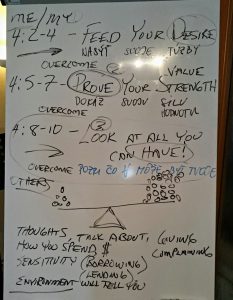 ME/MY
4:2-4 - FEED YOUR DESIRE
SVOJE
OVERCOME VALUE
4:5-7 - PROVE YOUR STRENGTH
DOKAZ SVOJU SILU
OVERCOME HODNOTU
4:8-10 - LOOK AT ALL YOU
CAN HAVE!
OVERCOME
OTHERS
THOUGHTS, TALK ABOUT, GIVING
HOW YOU SPEND $ COMPLAINING
SENSITIVITY (BORROWING,
LENDING)
ENVIRONMENT WILL TELL YOU